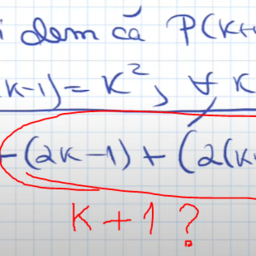 i dem că P(K+
K-1) = K², ∀ K
-(2K-1) + (2(K
K+1?